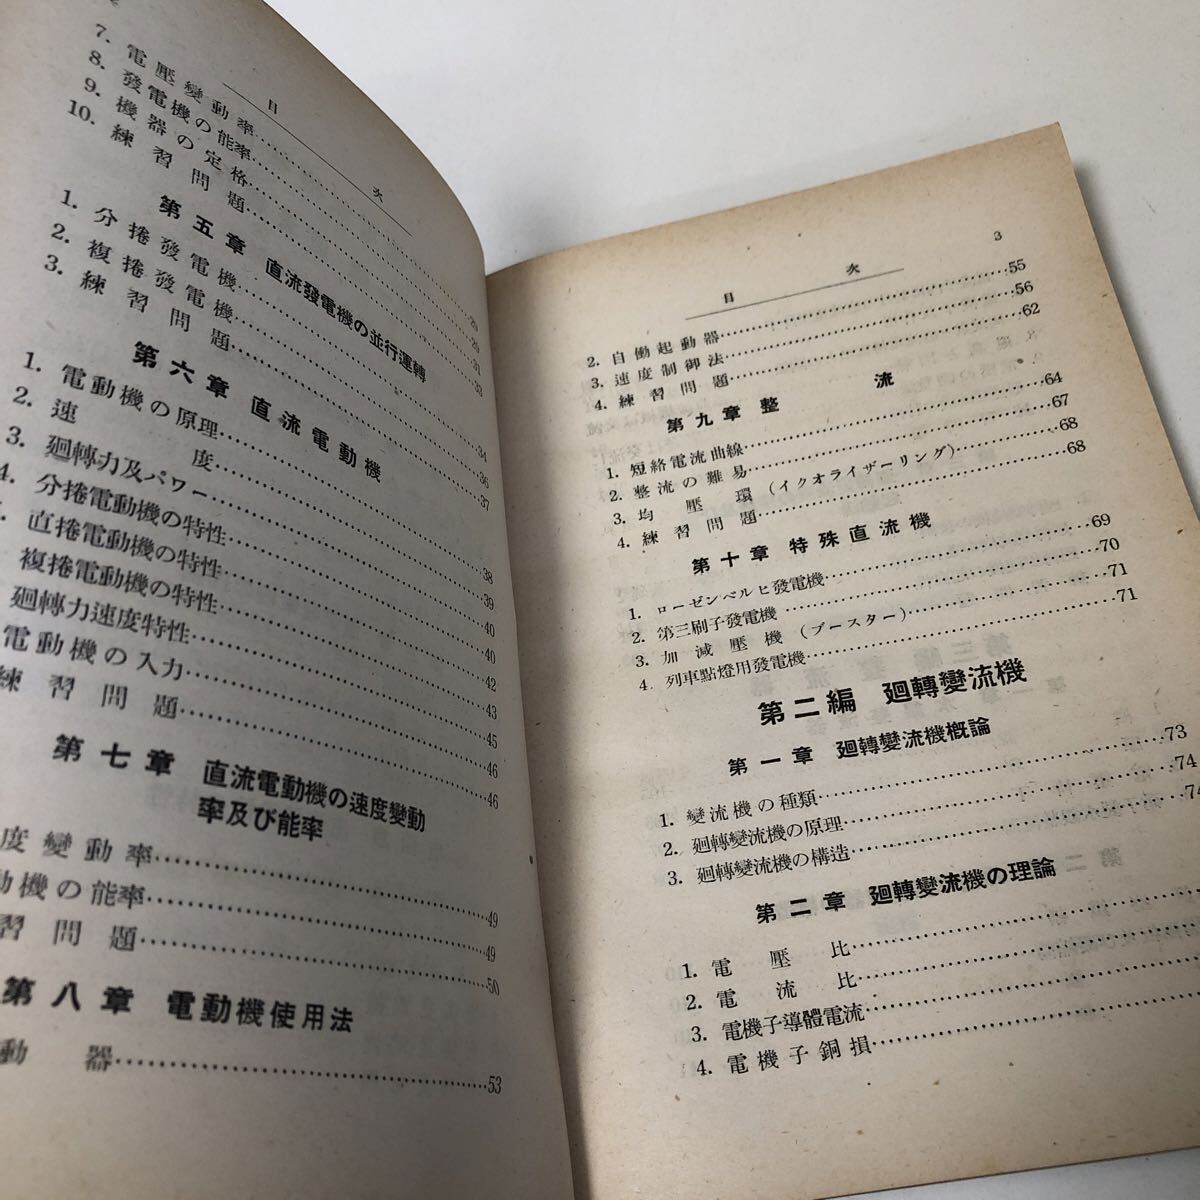 目次
7. 電壓變動率
8. 發電機の能率
9. 機器の定格
10. 練習問題
第五章 直流發電機の並行運轉
1. 分捲發電機
2. 複捲發電機
3. 練習問題
第六章 直流電動機
1. 電動機の原理……34
2. 速度……36
3. 廻轉力及パワー……37
4. 分捲電動機の特性……38
直捲電動機の特性……39
複捲電動機の特性……40
廻轉力速度特性……40
電動機の入力……42
練習問題……43
第七章 直流電動機の速度變動率及び能率
度變動率
動機の能率……49
習問題
第八章 電動機使用法
動器……53
3
目次
2. 自働起動器……55
3. 速度制御法……56
4. 練習問題……62
第九章 整流
1. 短絡電流曲線……64
2. 整流の難易……67
3. 均壓環(イクオライザーリング)……68
4. 練習問題……68
第十章 特殊直流機
1. ローゼンベルヒ發電機……69
2. 第三刷子發電機……70
3. 加減壓機(ブースター)……71
4. 列車點燈用發電機……71
第二編 廻轉變流機
第一章 廻轉變流機槪論
1. 變流機の種類……73
2. 廻轉變流機の原理……74
3. 廻轉變流機の構造……74
第二章 廻轉變流機の理論
1. 電壓比
2. 電流比
3. 電機子導體電流
4. 電機子銅損